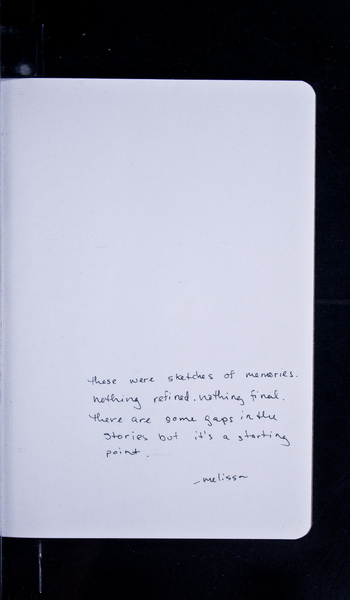 these were sketches of memories.
nothing refined. nothing final.
there are some gaps in the
stories but it's a starting
point.
-melissa